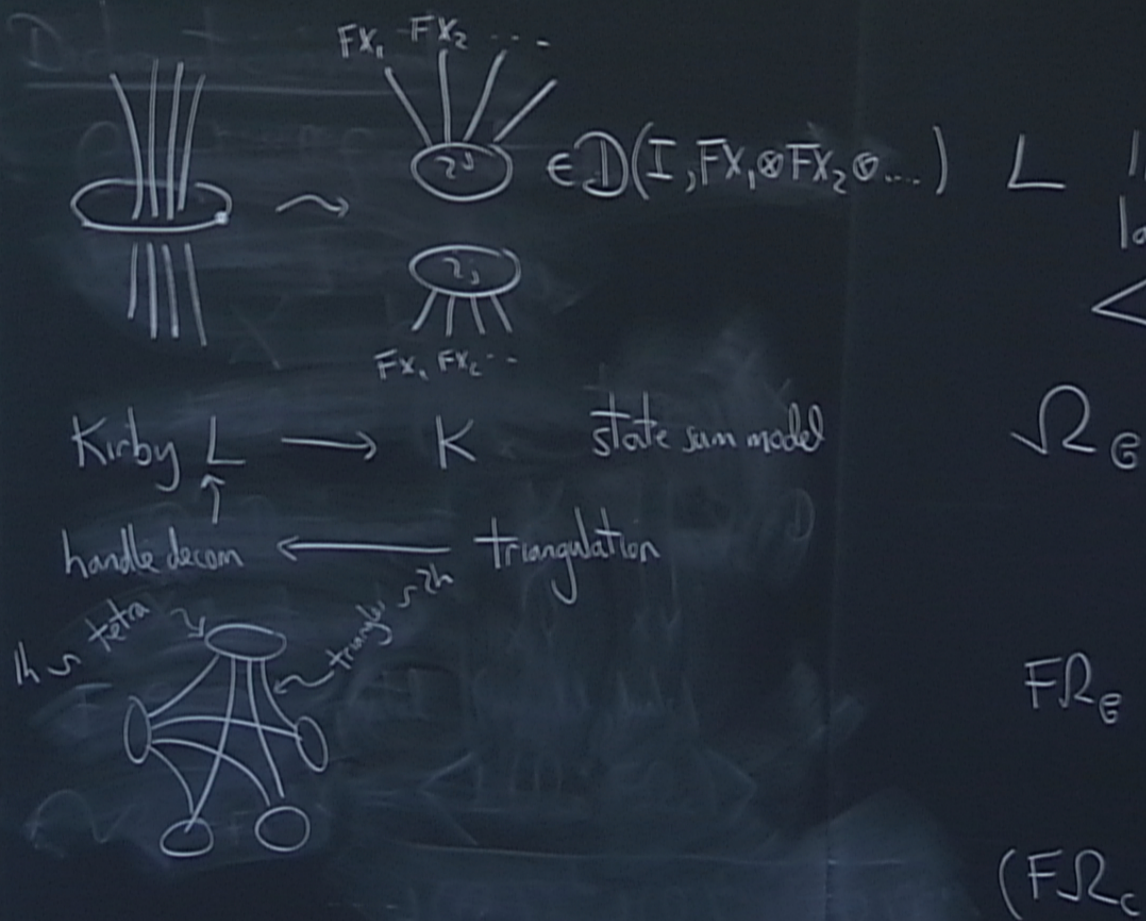 FX₁ FX₂ ...
∈ D(I, FX₁ ⊗ FX₂ ⊗ ....) L
FX₁ FX₂ ..
Kirby L → K state sum model
Ω
handle decom ← triangulation
1h ∽ tetra
triangles ∽ 2h
FΩ
(FΩ